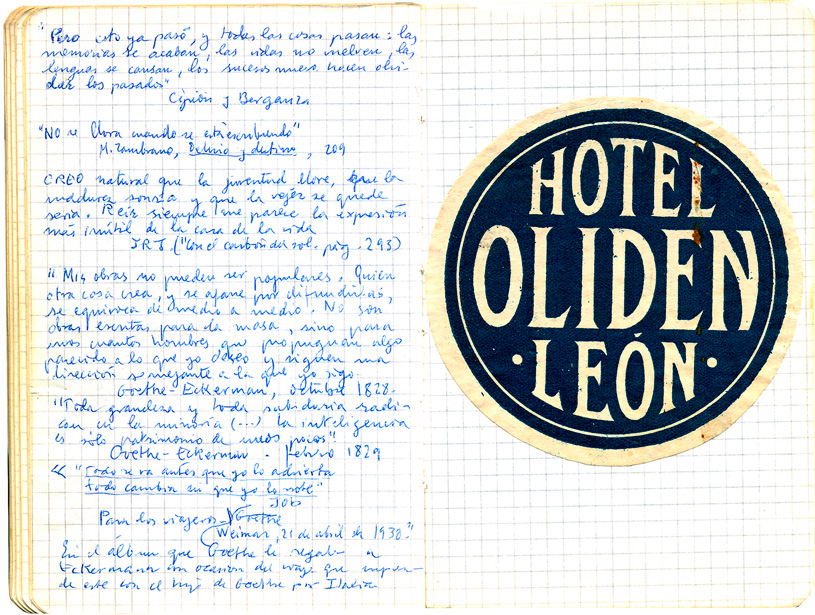 Pero esto ya pasó, y todas las cosas pasan: las
memorias se acaban, las vidas no vuelven, las
lenguas se cansan, los sucesos nuevos hacen olvi-
dar los pasados"
Cipión y Berganza
"No se llora cuando se está escribiendo"
M. Zambrano, Delirio y destino, 209
CREO natural que la juventud llore, que la
madurez sonría y que la vejez se quede
seria. Reir siempre me parece la expresión
más inútil de la casa de la vida
JRJ ("Con el carbón del sol. pág. 293)
"Mis obras no pueden ser populares. Quien
otra cosa crea, y se afane por difundirlas,
se equivoca de medio a medio. No son
obras escritas para la masa, sino para
unos cuantos hombres que propugnan algo
parecido a lo que yo deseo y siguen una
dirección semejante a la que yo sigo.
Goethe-Eckerman, octubre 1828.
"Toda grandeza y toda sabiduría radi-
can en la minoría (...) la inteligencia
es sólo patrimonio de unos pocos"
Goethe-Eckerman. febrero 1829
« "Todo se va antes que yo lo advierta
todo cambia sin que yo lo note"
Job
Para los viajeros Goethe
Weimar, 21 de abril de 1930."
En el álbum que Goethe le regaló a
Eckermann con ocasión del viaje que empren-
de este con el hijo de Goethe por Italia
HOTEL
OLIDEN
·LEÓN·